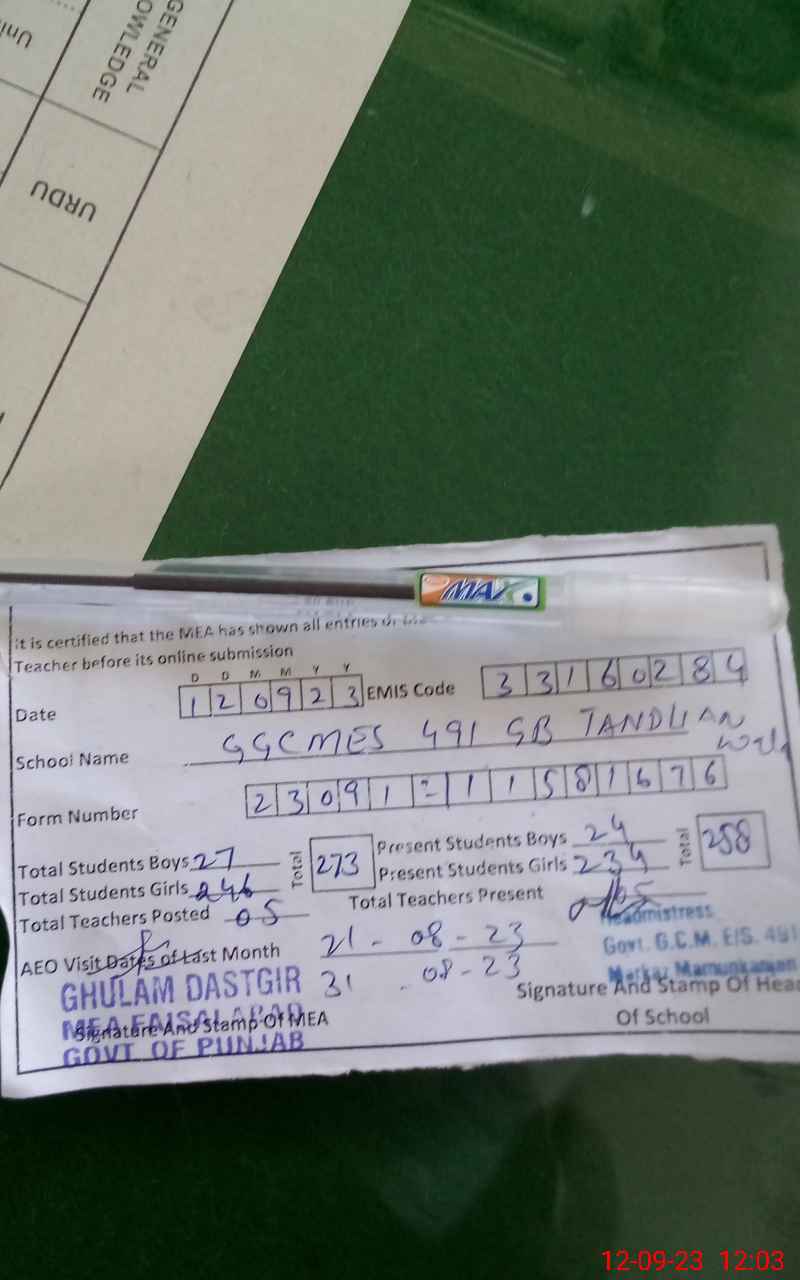 GENERAL
OWLEDGE
Uni
URDU
MAX
it is certified that the MEA has shown all entries of
Teacher before its online submission
D D M M Y Y
Date 1 2 0 9 2 3 EMIS Code 3 3 1 6 0 2 8 4
School Name GGCMES 491 GB TANDLIAN
Form Number 2 3 0 9 1 2 1 1 5 8 1 6 7 6
Total Students Boys 27 Total 273 Present Students Boys 24 Total 258
Total Students Girls 246 Present Students Girls 234
Total Teachers Posted 05 Total Teachers Present 05
Headmistress
AEO Visit Dates of Last Month 21 - 08 - 23
Govt. G.C.M. E/S. 491
31 - 08 - 23
Markaz Mamunkanjan
GHULAM DASTGIR
MEA FAISALABAD
GOVT OF PUNJAB
Signature And Stamp Of MEA
Signature And Stamp Of Head
Of School
12-09-23 12:03